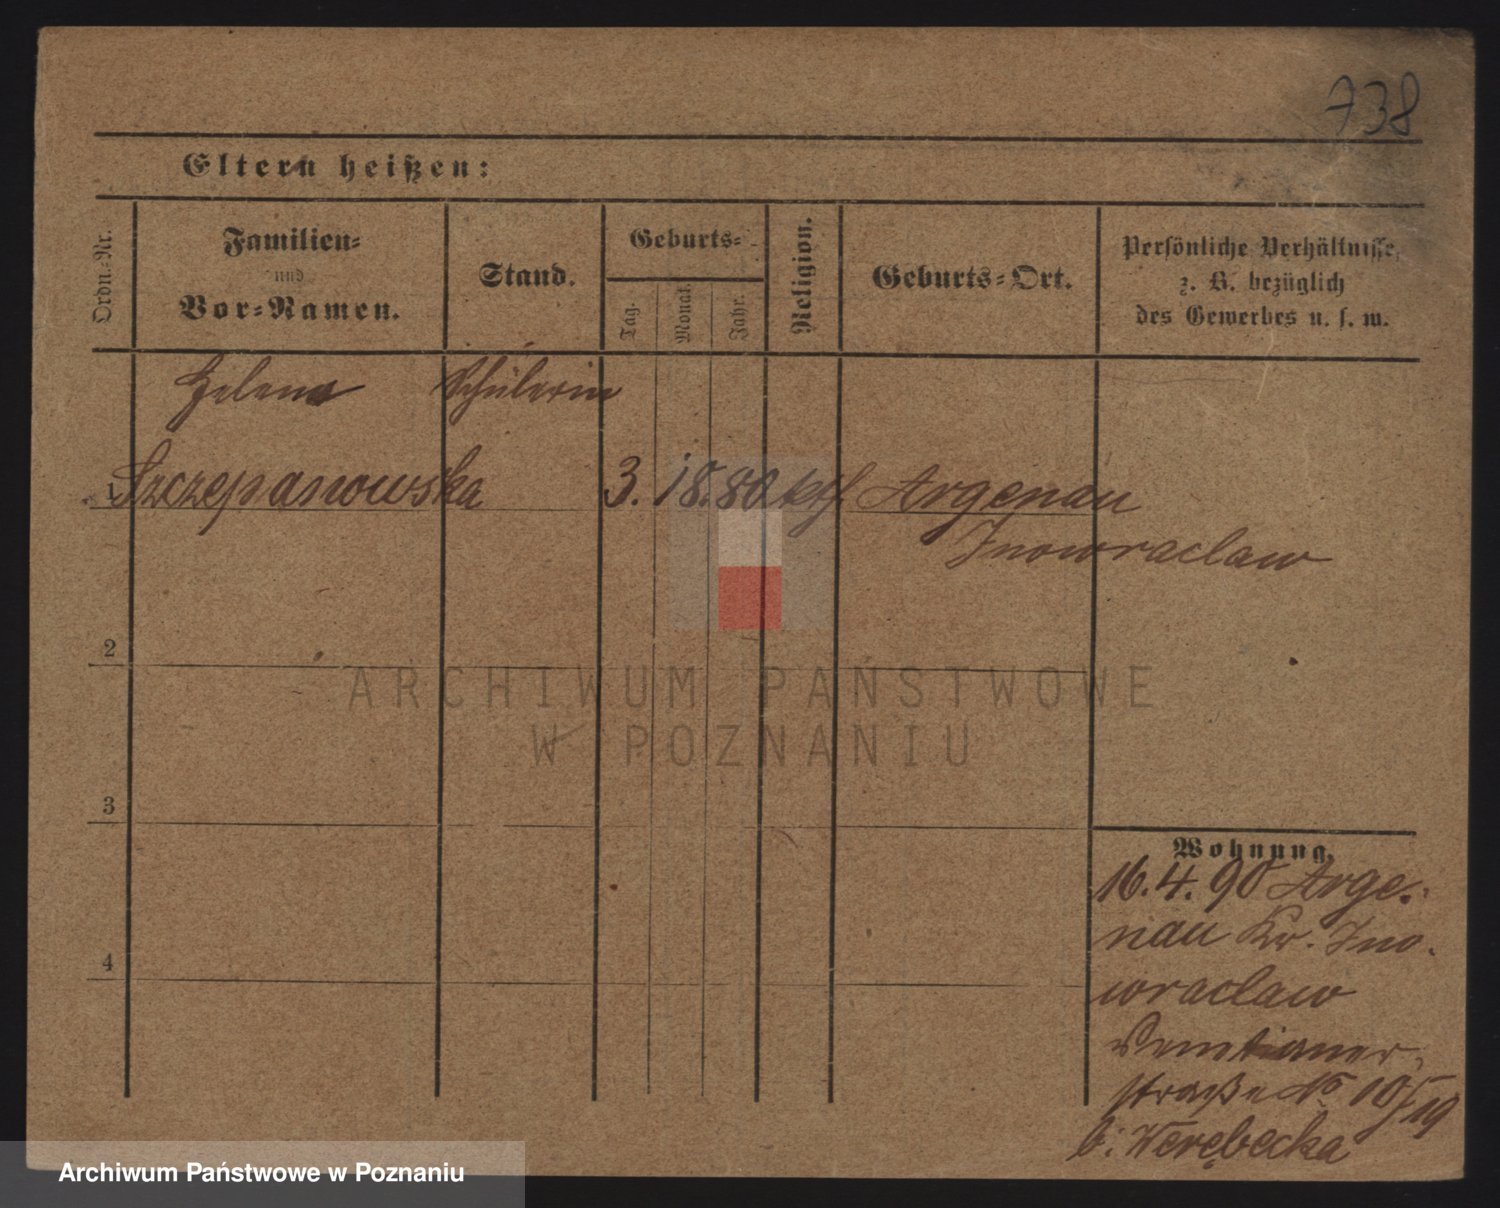 738
Eltern heißen:
Ordn.-Nr.
Familien-
und
Vor-Namen.
Stand.
Geburts-
Tag.
Monat.
Jahr.
Religion.
Geburts-Ort.
Persönliche Verhältnisse,
z. B. bezüglich
des Gewerbes u. s. w.
Helena Schülerin
1 Szczepanowska 3. 18.80 ktf Argenau
Inowraclaw
2
ARCHIWUM PAŃSTWOWE
W POZNANIU
3
Wohnung.
16.4.90 Arge-
nau Kr. Ino-
4
wraclaw
straße No 10/19
b. Werębecka
Archiwum Państwowe w Poznaniu